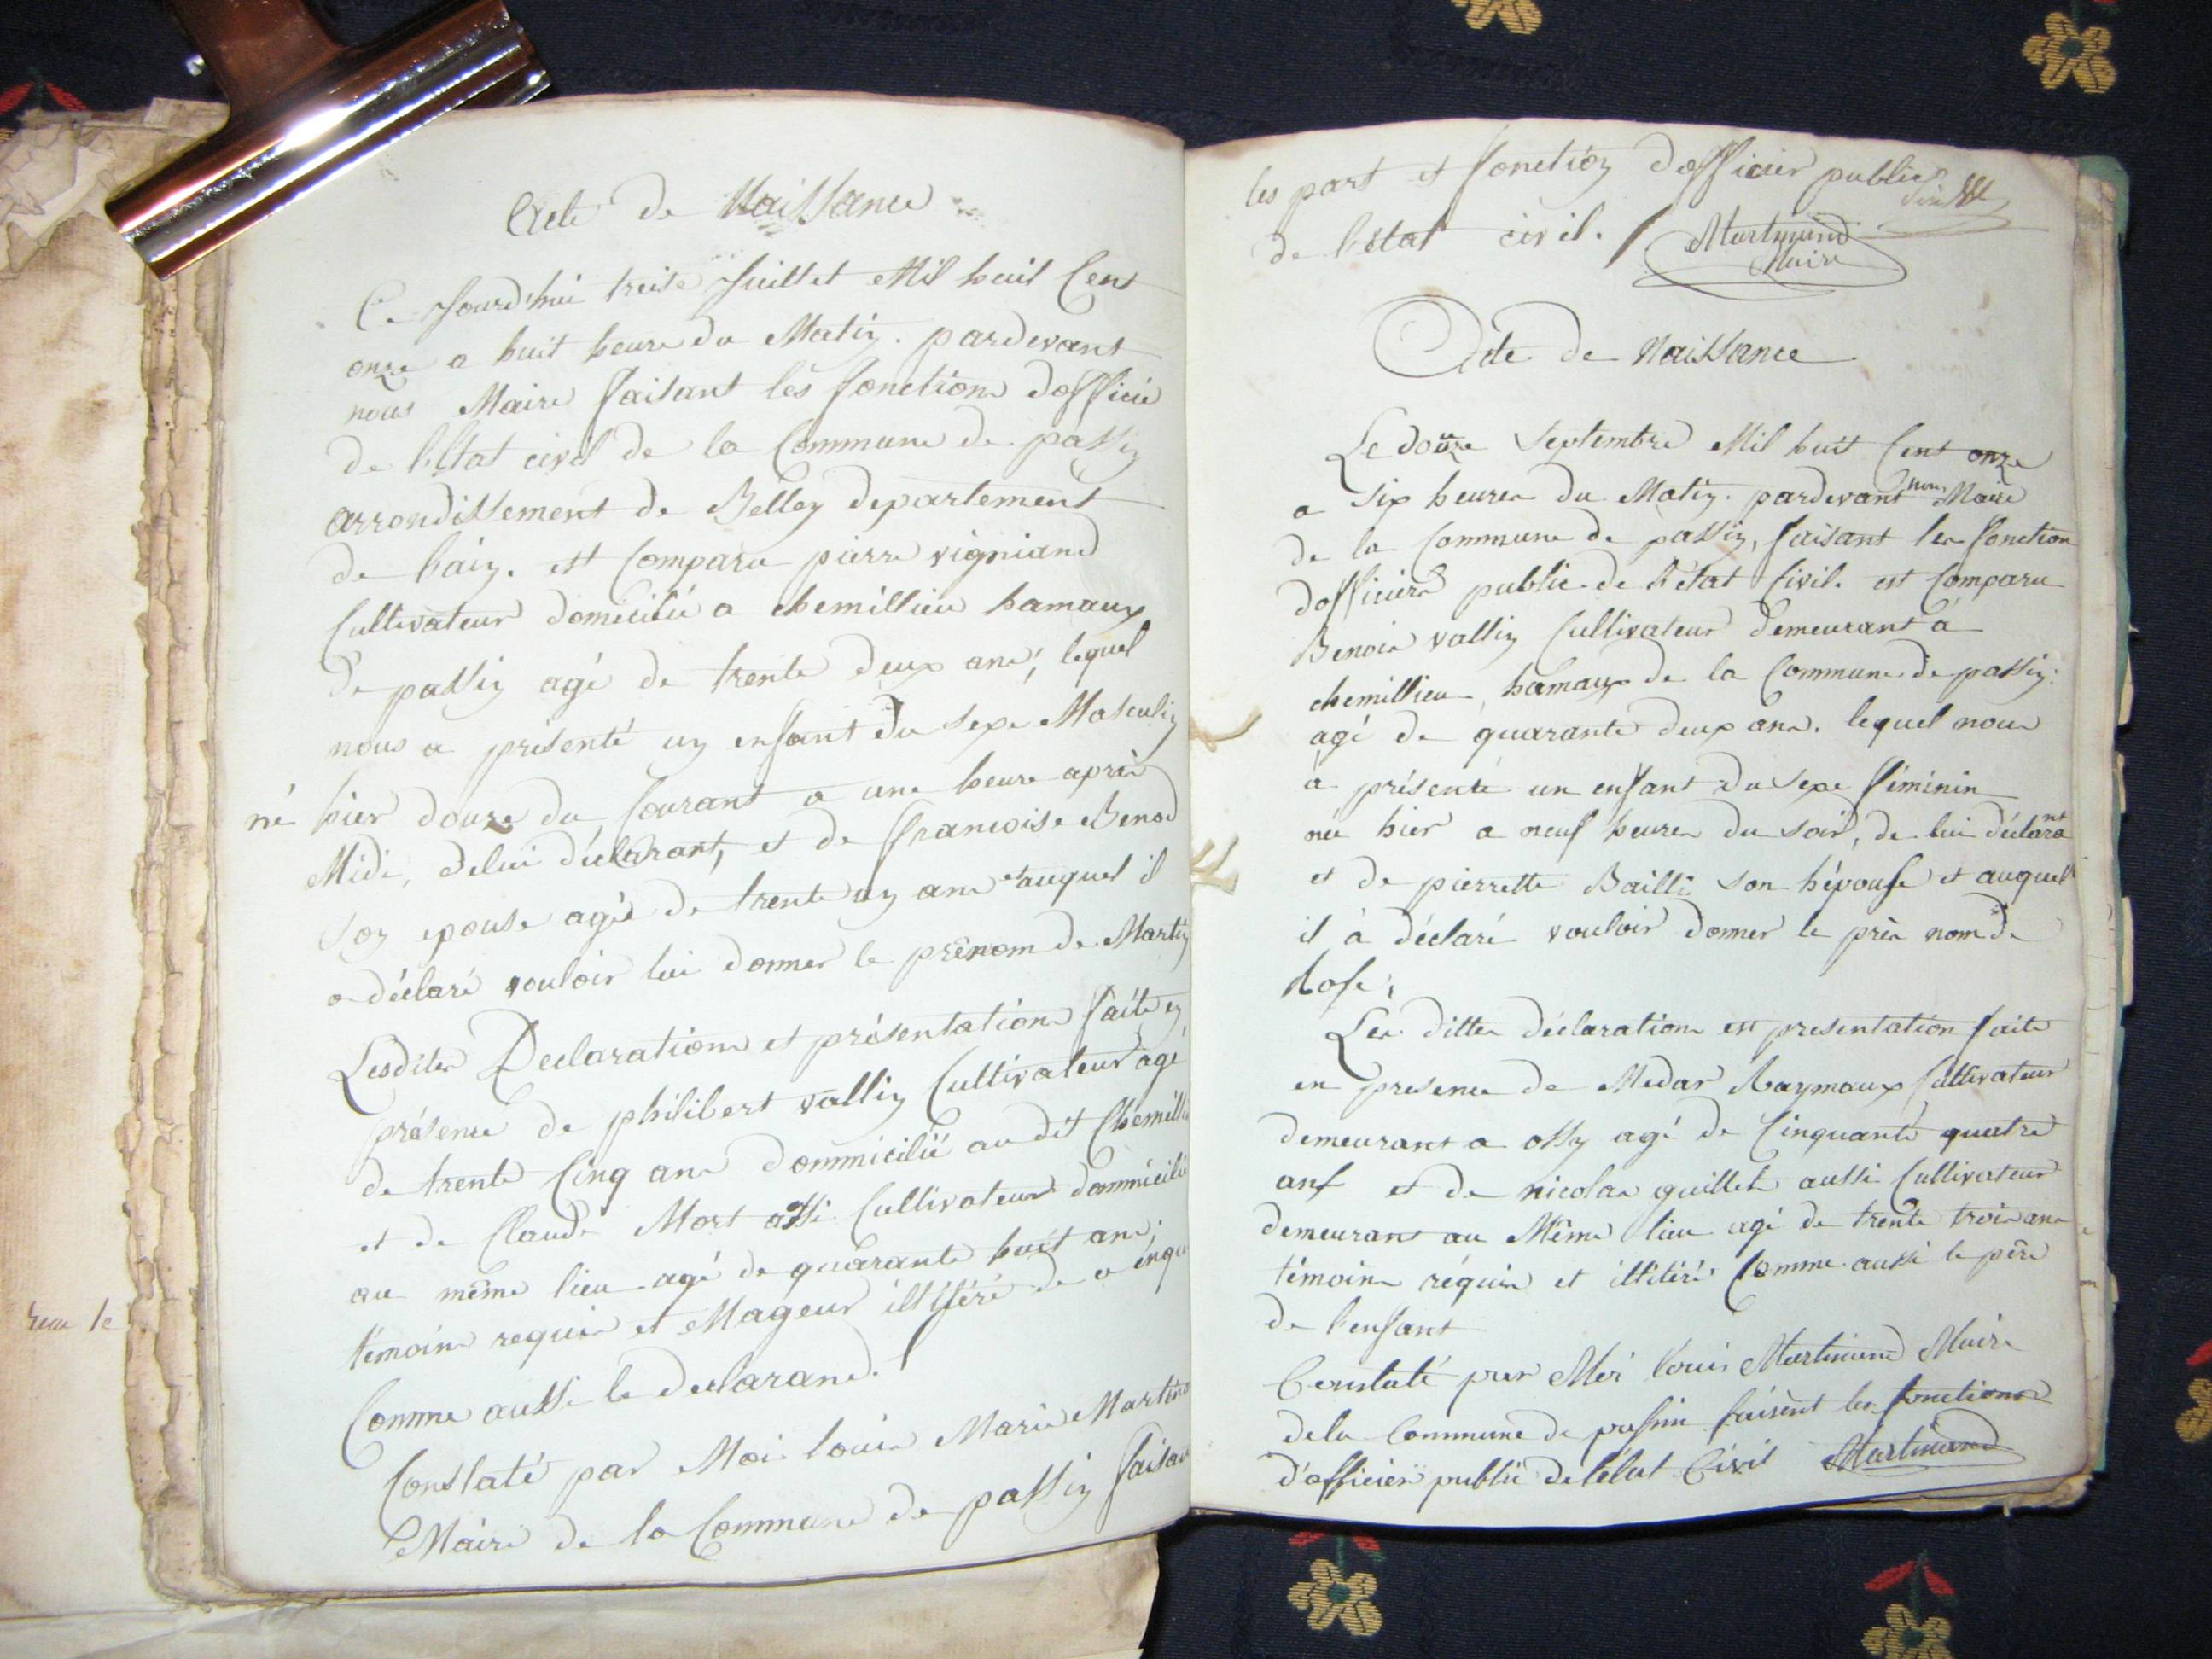 Acte de Naissance
Ce Jourd'hui treise Juillet Mil huit Cent
onze a huit heure du Matin. pardevant
nous Maire faisant les fonctions dofficié
de l'Etat civil de la Commune de passin
arrondissement de Belley departement
de l'ain. est Comparu pierre vigniand
Cultivateur domicilié a chemillieu hamaux
de passin agé de trente deux ans; lequel
nous a présenté un enfant du sexe Masculin
né hier douze du Courant a une heure après
Midi, de lui déclarant, et de francoise Benod
son epouse agée de trente un ans et auquel il
a déclaré vouloir lui donner le prénom de Martin
Lesdites Declarations et présentations faite en
présence de philibert vallin Cultivateur agé
de trente Cinq ans dommicilié au dit Chemilli
et de Claude Mort assi Cultivateur dommicilié
au même lieu agé de quarante huit ans;
témoins requis et Mageur illitéré de a enqu
Comme aussi le declarand.
Constaté par Moi louis Marie Martin
Maire de la Commune de passin faisa
reau le
les part et fonction dofficier public
de l'état civil. Martinand
Maire
Acte de Naissance
Le douze Septembre Mil huit Cent onze
a Six heures du Matin. pardevant nous Maire
de la Commune de passin, faisant les fonction
dofficiers public de l'état Civil. est Comparu
Benois vallin Cultivateur demeurant à
chemillieu, hamaux de la Commune de passin.
agé de quarante deux ans. lequel nous
à présenté un enfant du sexe féminin
née hier a neuf heures du soir, de lui déclarant
et de pierrette Bailli son hépouse et auquel
il à déclaré vouloir donner le prés nom de
Rose,
Les dittes déclarations est presentation faite
en presence de Medar Raymaux Cultivateur
demeurant a ossy agé de Cinquante quatre
ans et de nicolas guillet aussi Cultivateur
demeurant au Même lieu agé de trente trois ans
témoins réquis et illitéré Comme aussi le père
de l'enfant
Constaté par Moi louis Martinand Maire
de la Commune de passin faisent les fonctions
d'officier public de l'état Civil Martinand